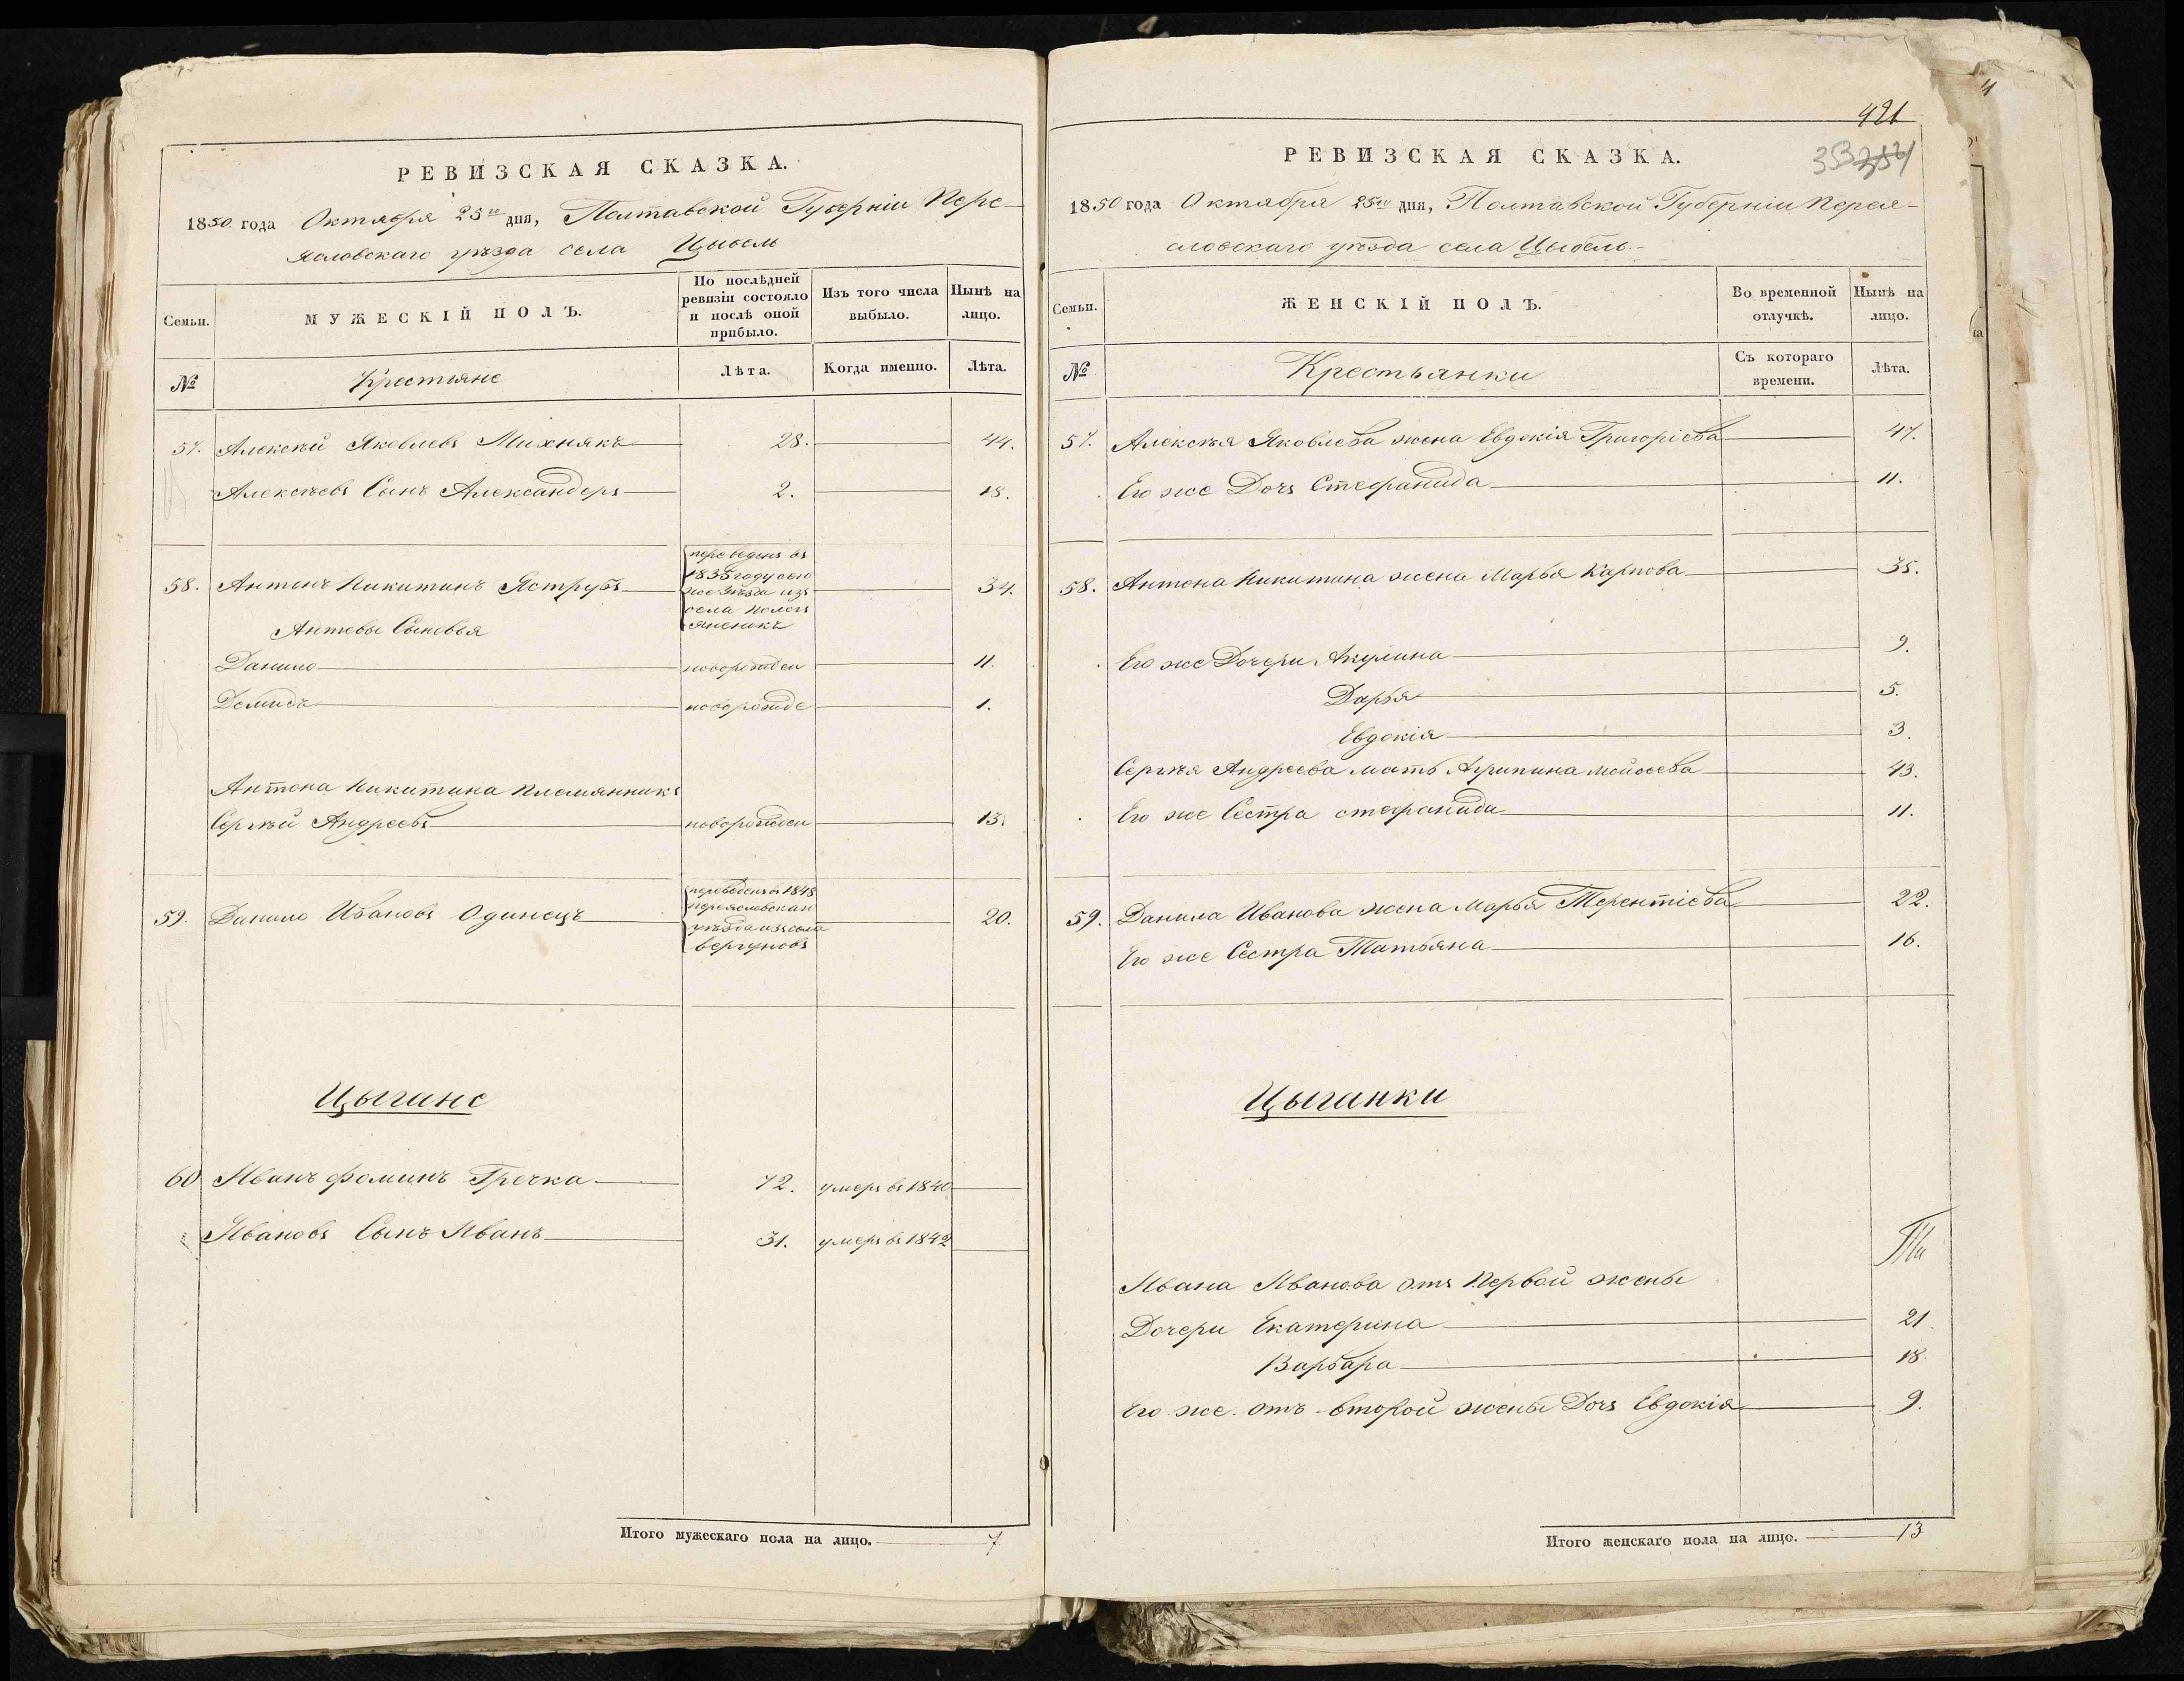 РЕВИЗСКАЯ СКАЗКА.
1850 года Октября 25го дня, Полтавской Губерніи Пере-
яславскаго уѣзда села Цыбель
Семьи.
МУЖЕСКІЙ ПОЛЪ.
По послѣдней ревизіи состояло и послѣ оной прибыло.
Изъ того числа выбыло.
Нынѣ на лицо.
№
Крестьяне
Лѣта.
Когда именно.
Лѣта.
57. Алексѣй Яковлевъ Михнякъ 28. 44.
Алексѣевъ Сынъ Александеръ 2. 18.
переведенъ въ
1835 году сего
58. Антонъ Никитинъ Яструбъ же уѣзда изъ 34.
села
Антовы Сыновья
Данило новорожден 11.
Демидъ новорожде 1.
Антона Никитина Племянникъ
Сергѣй Андреевъ новорожден 13.
переведенъ 1848
59. Данило Ивановъ Одинецъ 20.
уѣзда изъ села
вергуновъ
Цыгане
60 Иванъ Фоминъ Гречка 72. умеръ въ 1840
Ивановъ Сынъ Иванъ 31. умеръ въ 1842
Итого мужескаго пола на лицо. 7
421
353 354
РЕВИЗСКАЯ СКАЗКА.
1850 года Октября 25го дня, Полтавской Губерніи Перея-
словскаго уѣзда села Цыбель
Семьи.
ЖЕНСКІЙ ПОЛЪ.
Во временной отлучкѣ.
Нынѣ на лицо.
№
Крестьянки
Съ котораго времени.
Лѣта.
57. Алексѣя Яковлева жена Евдокія Григоріева 47.
Его же Дочь Стефанида 11.
58. Антона Никитина жена Марья Карпова 35.
Его же Дочери Акулина 9.
Дарья 5.
Евдокія 3.
Сергѣя Андреева мать Агрипина Мойсеева 43.
Его же Сестра стефанида 11.
59. Данила Иванова жена Марья Терентіева 22.
Его же Сестра Татьяна 16.
Цыганки
Ивана Иванова отъ Первой жены
Дочери Екатерина 21.
Варвара 18.
Его же отъ второй жены Дочь Евдокія 9.
Итого женскаго пола на лицо. 13